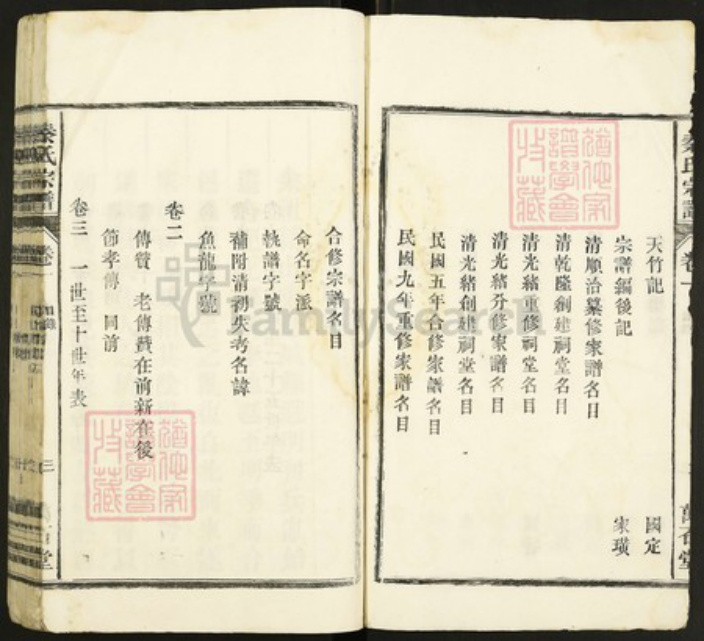 天竹記　國定
宗譜編後記　家璜
清順治纂修家譜名目
清乾隆創建祠堂名目
清光緒重修祠堂名目
清光緒分修家譜名目
清光緒創建祠堂名目
民國五年合修家譜名目
民國九年重修家譜名目
合修宗譜名目
命名字派
執譜字號
補附清初失考名諱
魚龍字號
卷二
傳贊　老傳贊在前新在後
節孝傳　同前
卷三　一世至十世年表
秦氏宗譜
FamilySearch